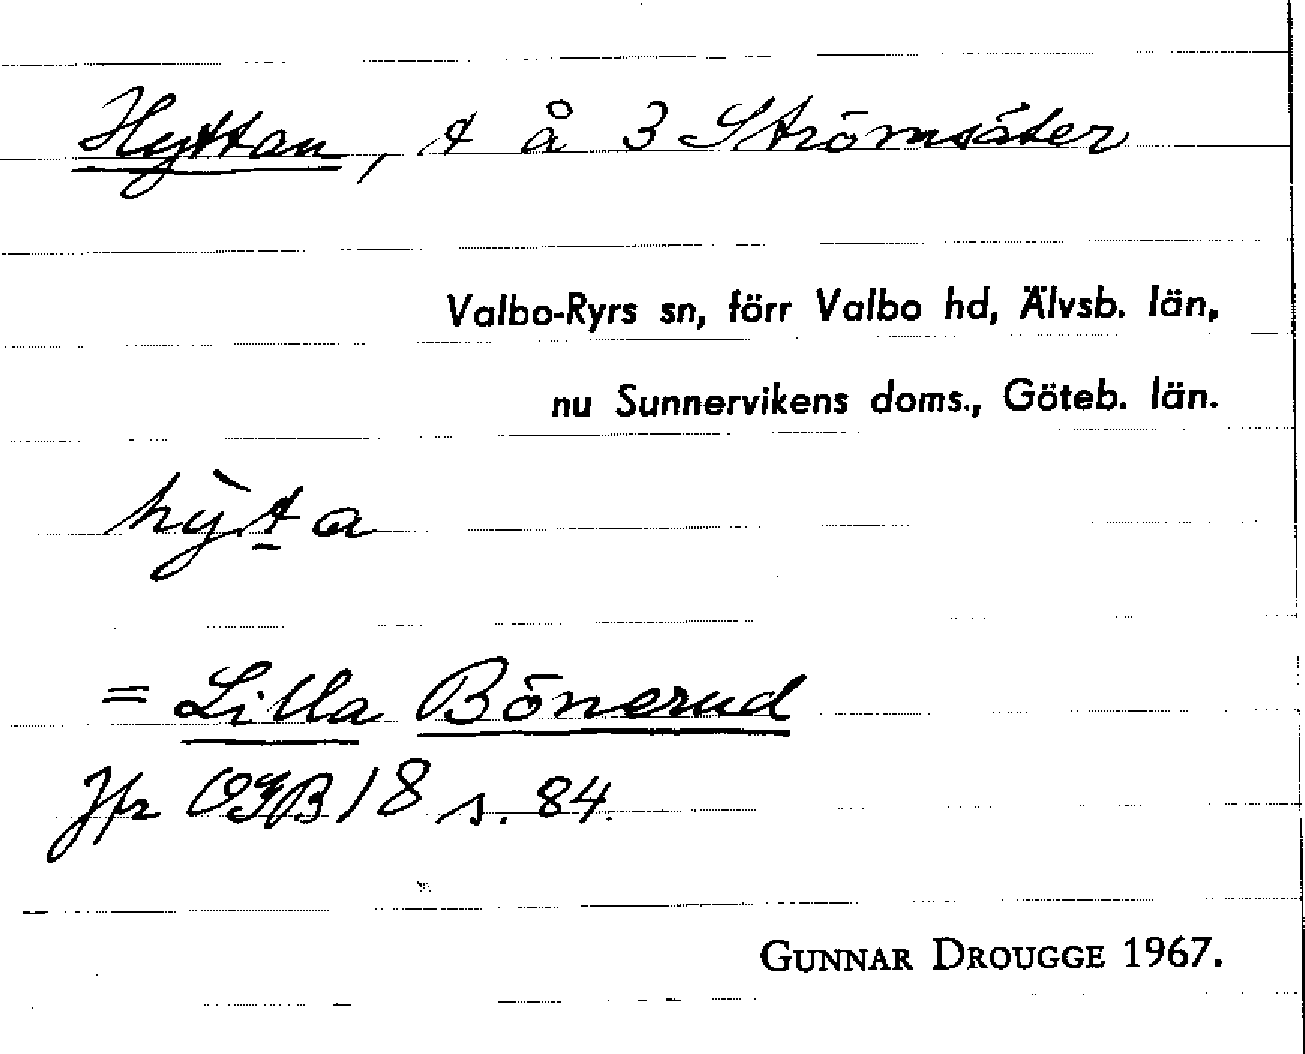 Hyttan, t å 3 Strömsäter
Valbo-Ryrs sn, förr Valbo hd, Älvsb. län,
nu Sunnervikens doms., Göteb. län.
hỳt̲a
= Lilla Bönerud
Jfr OGB 18 s. 84.
GUNNAR DROUGGE 1967.